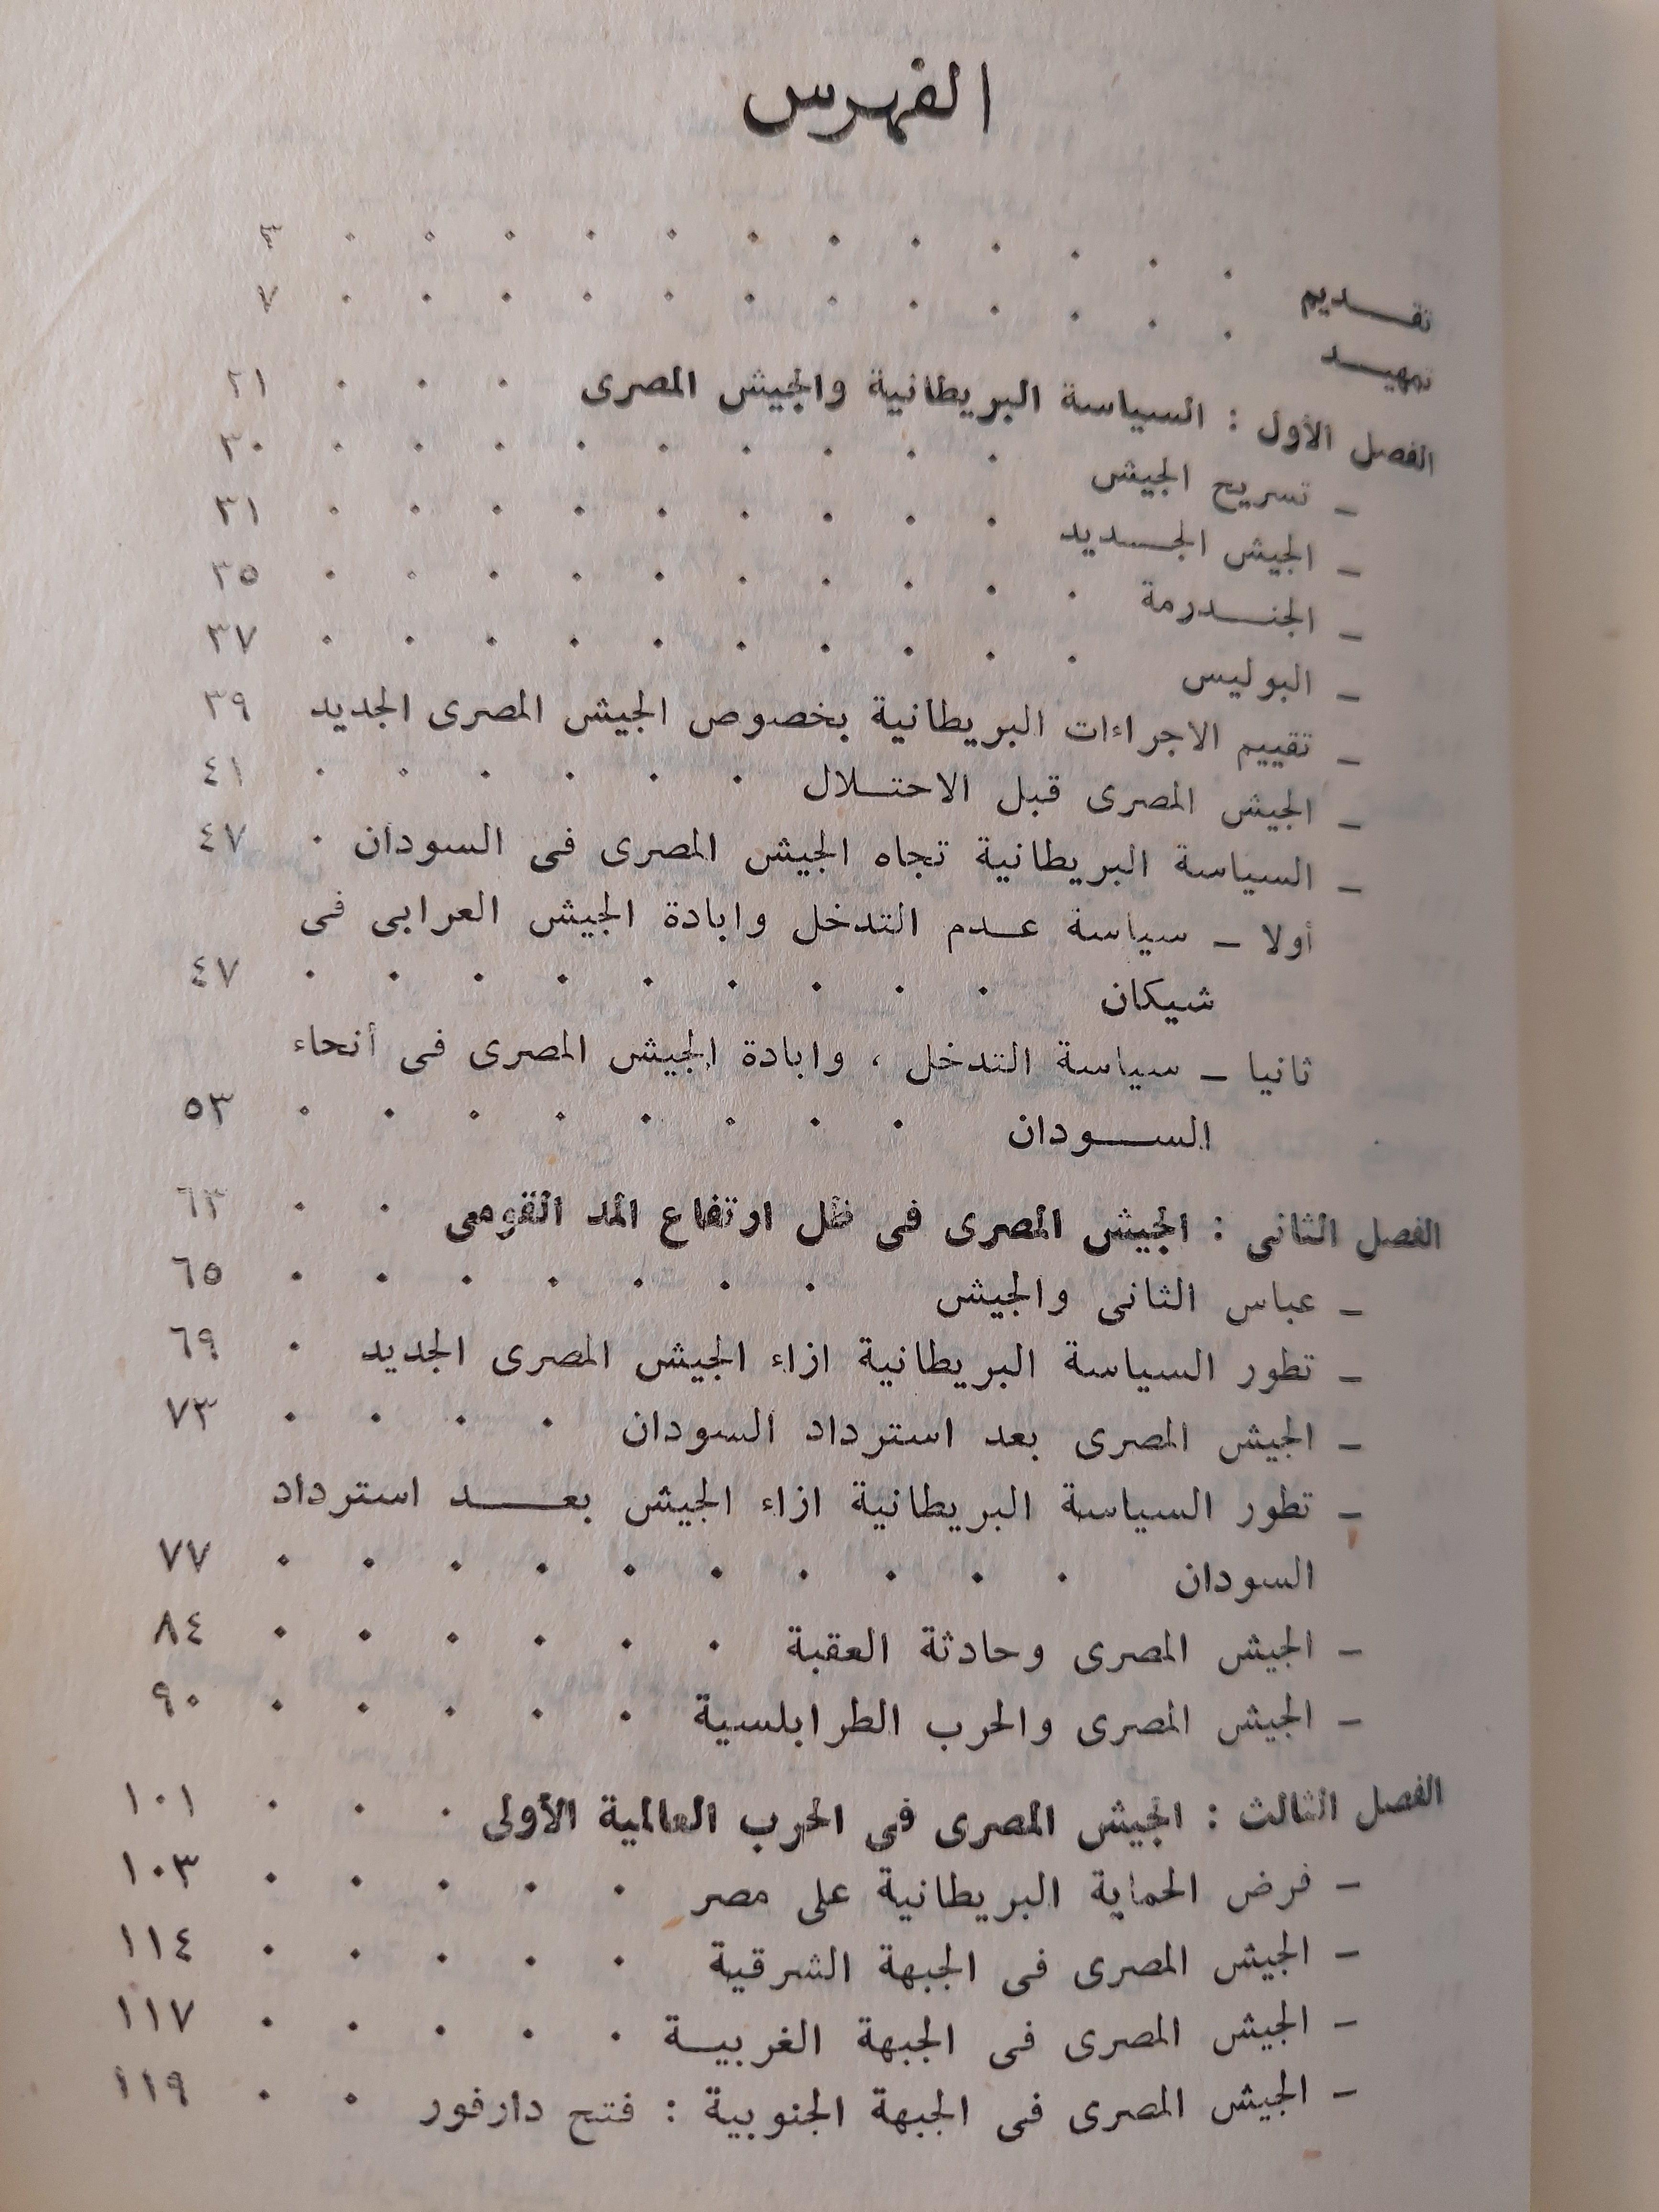 الفهرس
تقديم ٣
تمهيد ٧
الفصل الأول : السياسة البريطانية والجيش المصرى ٢١
ـ تسريح الجيش ٣٠
ـ الجيش الجديد ٣١
ـ الجندرمة ٣٥
ـ البوليس ٣٧
ـ تقييم الاجراءات البريطانية بخصوص الجيش المصرى الجديد ٣٩
ـ الجيش المصرى قبل الاحتلال ٤١
ـ السياسة البريطانية تجاه الجيش المصرى فى السودان ٤٧
أولا ـ سياسة عدم التدخل وابادة الجيش العرابى فى
شيكان ٤٧
ثانيا ـ سياسة التدخل ، وابادة الجيش المصرى فى أنحاء
السودان ٥٣
الفصل الثانى : الجيش المصرى فى ظل ارتفاع المد القومى ٦٣
ـ عباس الثانى والجيش ٦٥
ـ تطور السياسة البريطانية ازاء الجيش المصرى الجديد ٦٩
ـ الجيش المصرى بعد استرداد السودان ٧٣
ـ تطور السياسة البريطانية ازاء الجيش بعد استرداد
السودان ٧٧
ـ الجيش المصرى وحادثة العقبة ٨٤
ـ الجيش المصرى والحرب الطرابلسية ٩٠
الفصل الثالث : الجيش المصرى فى الحرب العالمية الأولى ١٠١
ـ فرض الحماية البريطانية على مصر ١٠٣
ـ الجيش المصرى فى الجبهة الشرقية ١١٤
ـ الجيش المصرى فى الجبهة الغربية ١١٧
ـ الجيش المصرى فى الجبهة الجنوبية : فتح دارفور ١١٩